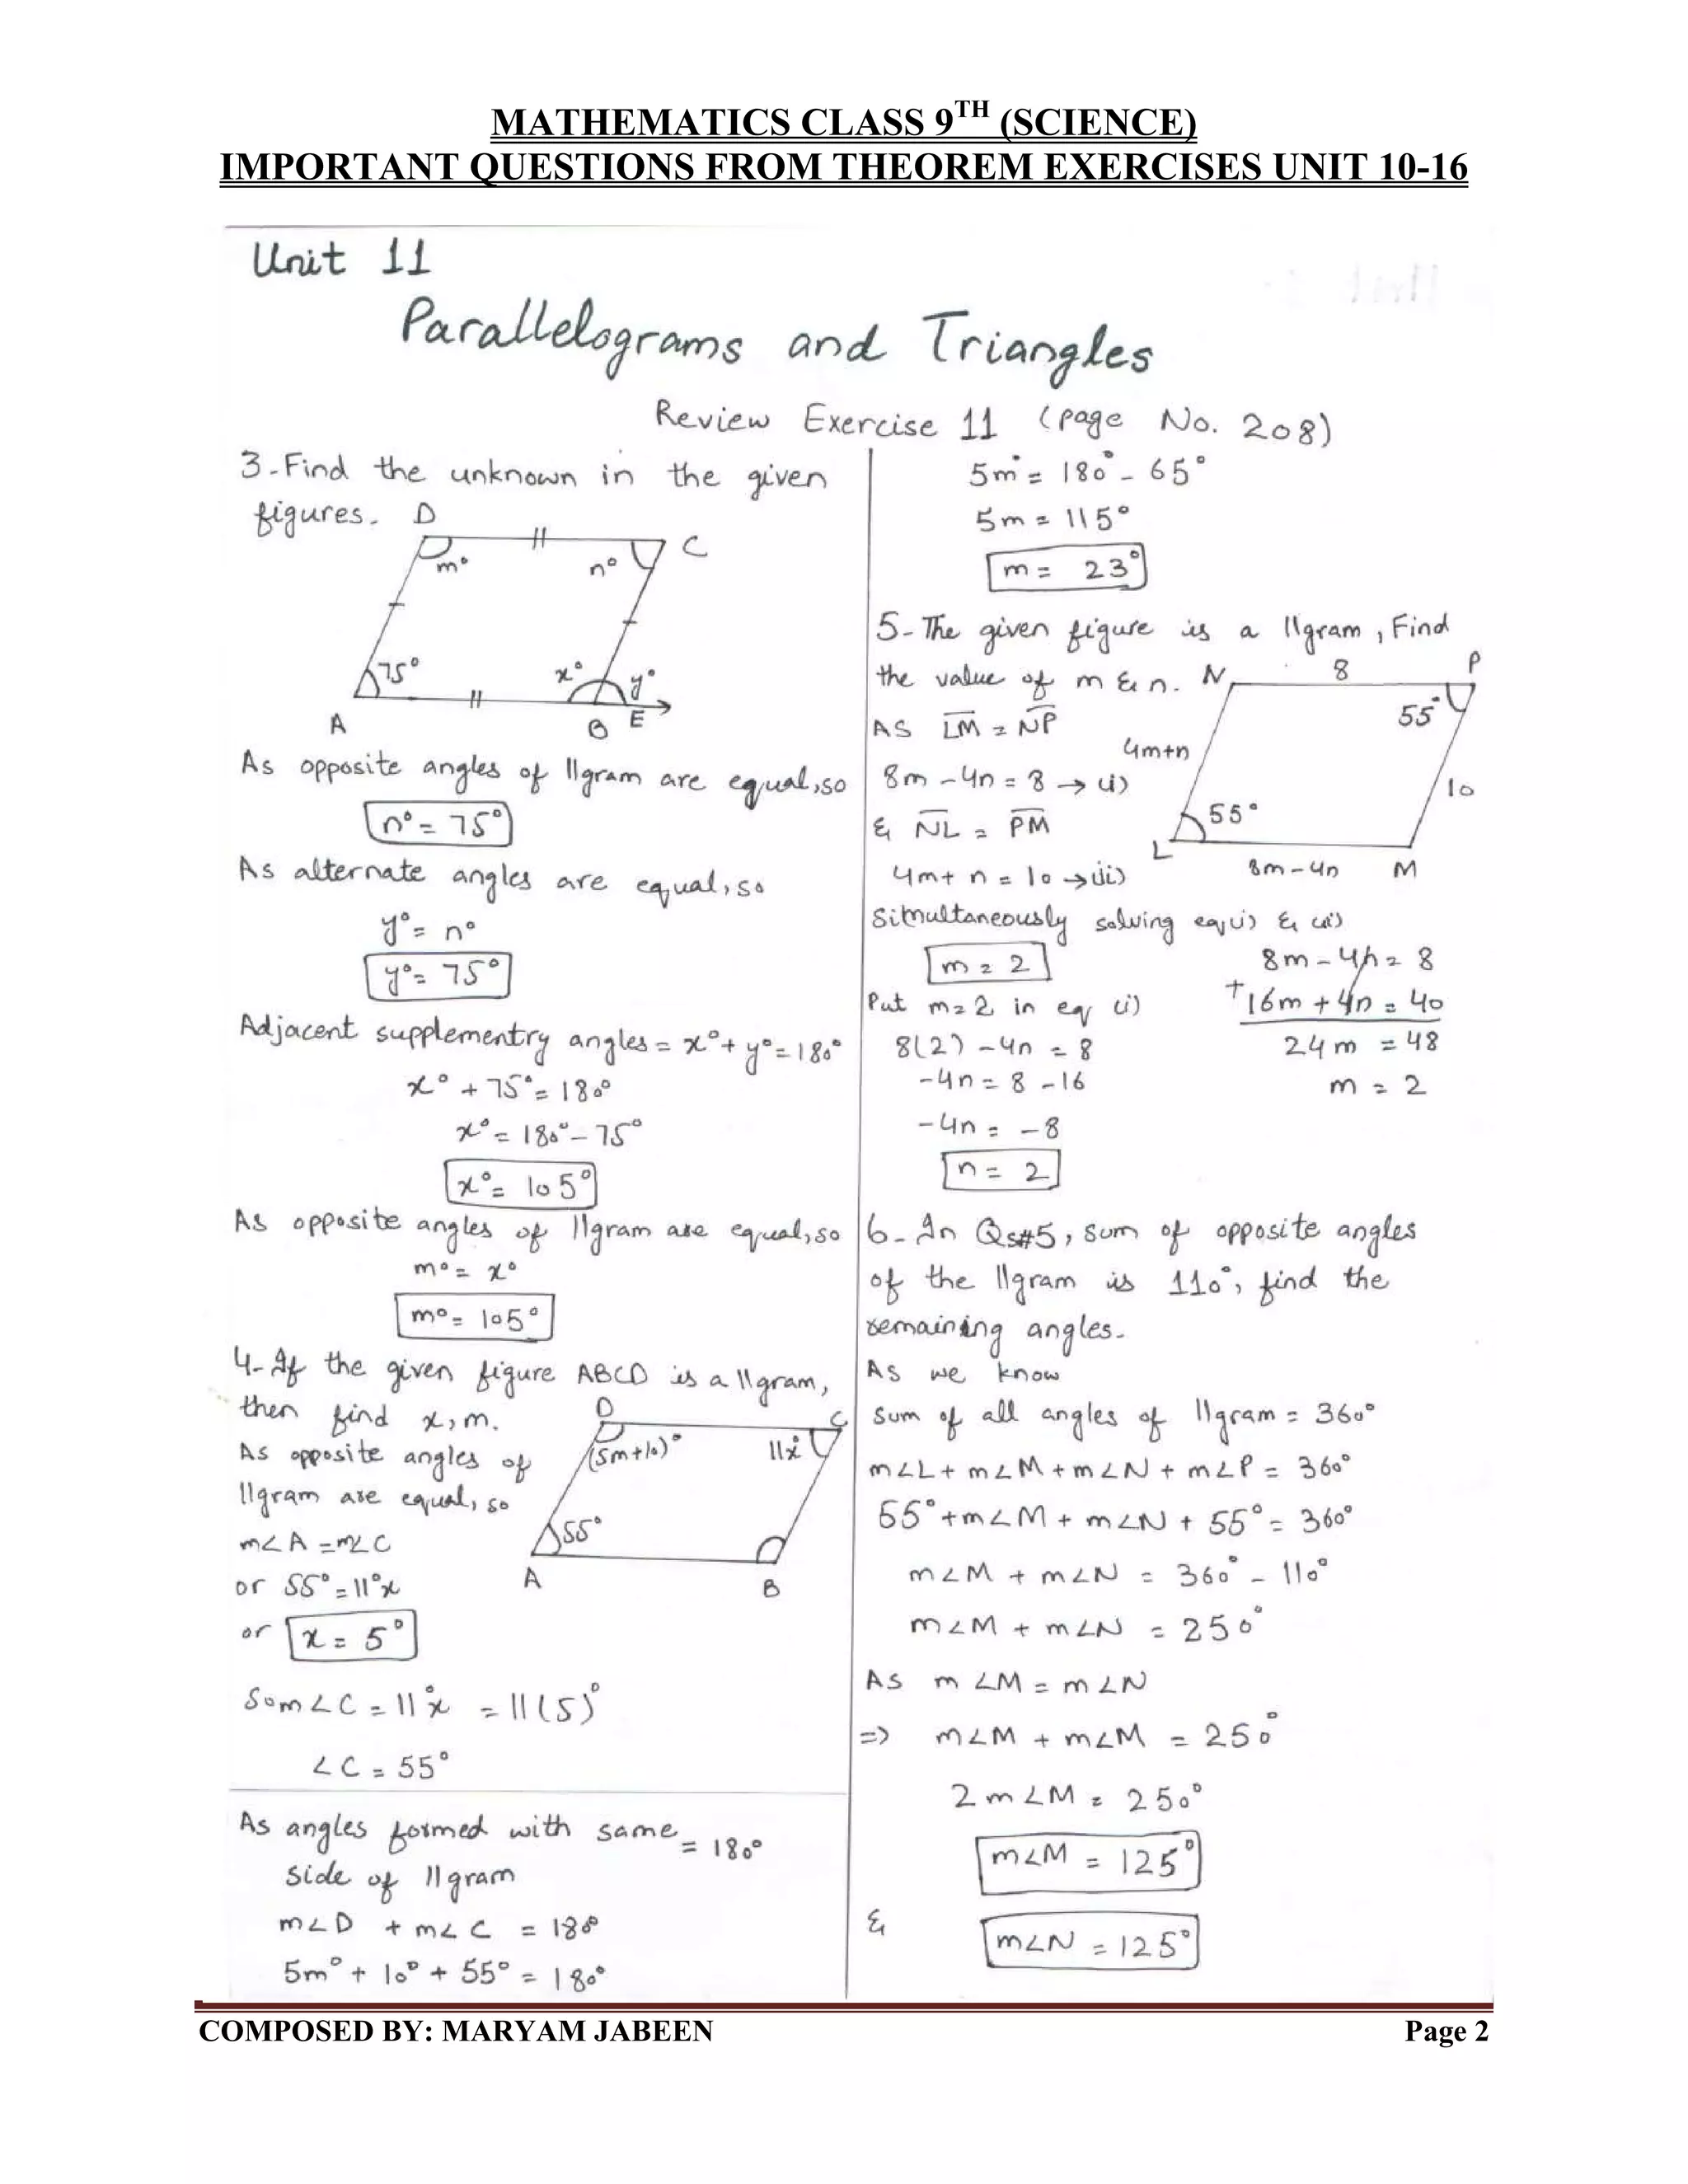 MATHEMATICS CLASS 9TH (SCIENCE)
IMPORTANT QUESTIONS FROM THEOREM EXERCISES UNIT 10-16
Unit 11
Parallelograms and Triangles
Review Exercise 11 (page No. 208)
3-Find the unknown in the given
figures.
D
C
m°
n°
75°
x°
y°
A
B
E
As opposite angles of llgram are equal,so
n° = 75°
As alternate angles are equal, so
y° = n°
y° = 75°
Adjacent supplementry angles = x° + y° = 180°
x° + 75° = 180°
x° = 180° - 75°
x° = 105°
As opposite angles of llgram are equal, so
m° = x°
m° = 105°
4- If the given figure ABCD is a llgram,
then find x, m.
D
C
(5m+10)°
11x°
55°
A
B
As opposite angles of
llgram are equal, so
m∠A = m∠C
or 55° = 11°x
or x = 5°
So m∠C = 11°x = 11(5)°
∠C = 55°
As angles formed with same = 180°
side of llgram
m∠D + m∠C = 180°
5m° + 10° + 55° = 180°
5m° = 180° - 65°
5m = 115°
m = 23°
5- The given figure is a llgram, Find
the value of m & n.
N
8
P
55°
4m+n
10
55°
L
8m-4n
M
As LM = NP
8m - 4n = 8 → (i)
& NL = PM
4m + n = 10 → (ii)
Simultaneously solving eq (i) & (ii)
m = 2
8m - 4n = 8
+ 16m + 4n = 40
24m = 48
m = 2
Put m = 2 in eq (i)
8(2) - 4n = 8
-4n = 8 - 16
-4n = -8
n = 2
6- In Qs#5, sum of opposite angles
of the llgram is 110°, find the
remaining angles.
As we know
sum of all angles of llgram = 360°
m∠L + m∠M + m∠N + m∠P = 360°
55° + m∠M + m∠N + 55° = 360°
m∠M + m∠N = 360° - 110°
m∠M + m∠N = 250°
As m∠M = m∠N
=> m∠M + m∠M = 250°
2m∠M = 250°
m∠M = 125°
& m∠N = 125°
COMPOSED BY: MARYAM JABEEN
Page 2